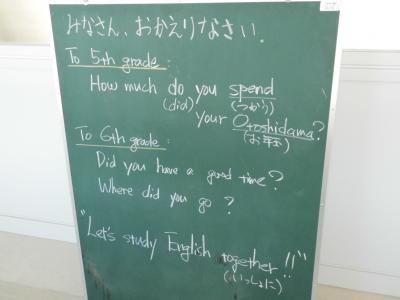 みなさん、おかえりなさい.
To 5th grade:
How much do you spend
(did) (つかう)
your Otoshidama?
(お年玉)
To 6th grade:
Did you have a good time?
Where did you go?
"Let's study English together!!"
(いっしょに)